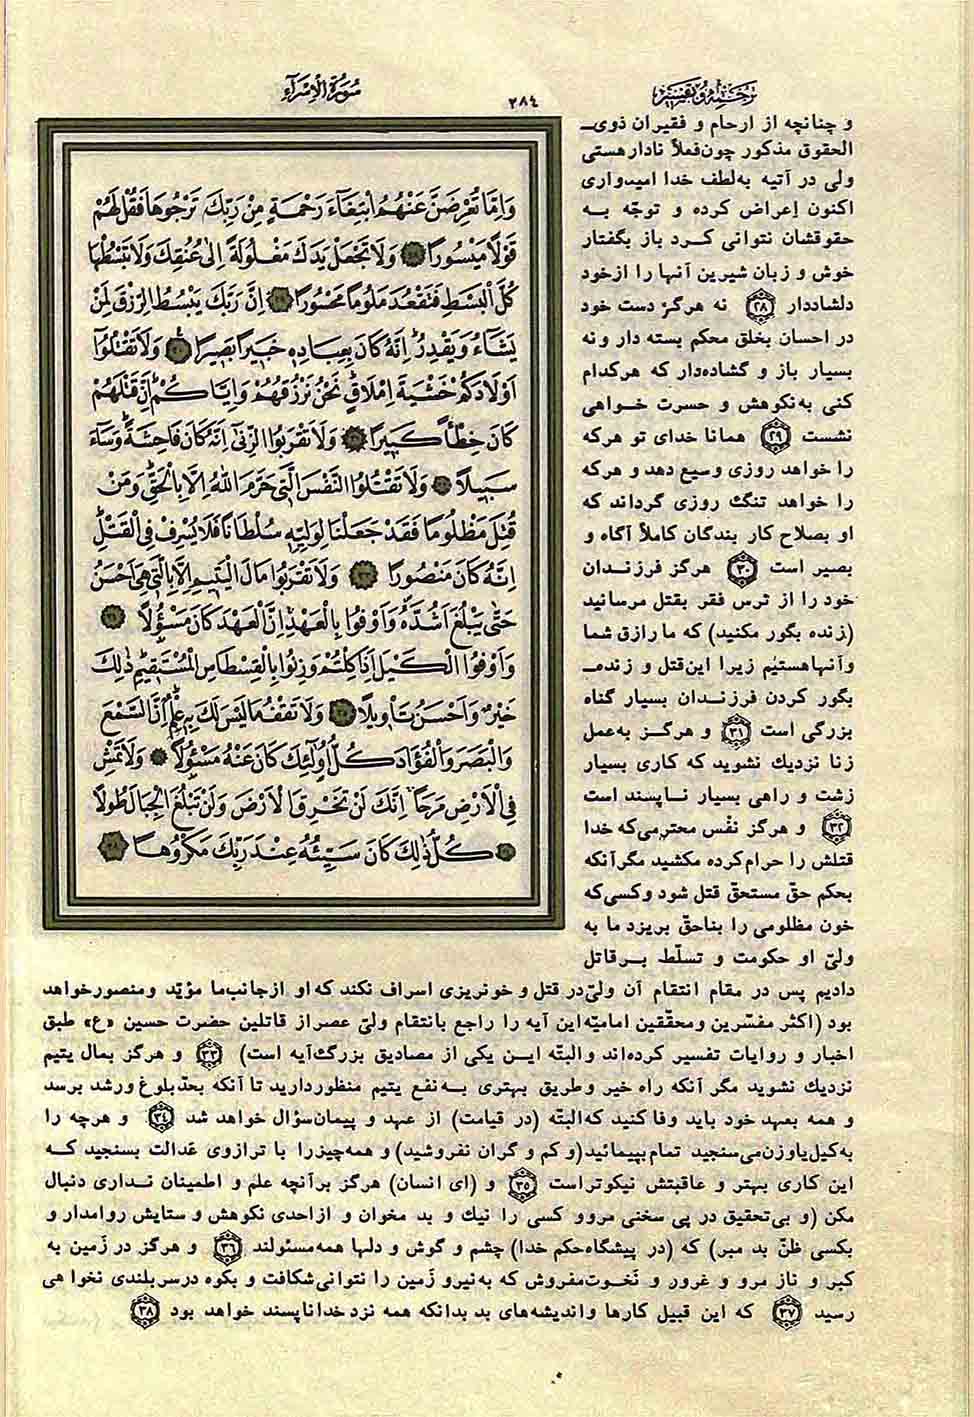 ترجمه و تفسیر
۲۸٤
سُورَةُ الْاِسْرَآءِ
وَاِمَّا تُعْرِضَنَّ عَنْهُمُ ابْتِغَآءَ رَحْمَةٍ مِنْ رَبِّكَ تَرْجُوهَا فَقُلْ لَهُمْ
قَوْلًا مَيْسُورًا ۲۸ وَلَا تَجْعَلْ يَدَكَ مَغْلُولَةً اِلٰى عُنُقِكَ وَلَا تَبْسُطْهَا
كُلَّ الْبَسْطِ فَتَقْعُدَ مَلُومًا مَحْسُورًا ۲۹ اِنَّ رَبَّكَ يَبْسُطُ الرِّزْقَ لِمَنْ
يَشَآءُ وَيَقْدِرُ اِنَّهُ كَانَ بِعِبَادِهِ خَبِيرًا بَصِيرًا ۳۰ وَلَا تَقْتُلُوٓا
اَوْلَادَكُمْ خَشْيَةَ اِمْلَاقٍ نَحْنُ نَرْزُقُهُمْ وَاِيَّاكُمْ اِنَّ قَتْلَهُمْ
كَانَ خِطْأً كَبِيرًا ۳۱ وَلَا تَقْرَبُوا الزِّنٰى اِنَّهُ كَانَ فَاحِشَةً وَسَآءَ
سَبِيلًا ۳۲ وَلَا تَقْتُلُوا النَّفْسَ الَّتِي حَرَّمَ اللّٰهُ اِلَّا بِالْحَقِّ وَمَنْ
قُتِلَ مَظْلُومًا فَقَدْ جَعَلْنَا لِوَلِيِّهِ سُلْطَانًا فَلَا يُسْرِفْ فِي الْقَتْلِ
اِنَّهُ كَانَ مَنْصُورًا ۳۳ وَلَا تَقْرَبُوا مَالَ الْيَتِيمِ اِلَّا بِالَّتِي هِيَ اَحْسَنُ
حَتّٰى يَبْلُغَ اَشُدَّهُ وَاَوْفُوا بِالْعَهْدِ اِنَّ الْعَهْدَ كَانَ مَسْؤُلًا ۳٤
وَاَوْفُوا الْكَيْلَ اِذَا كِلْتُمْ وَزِنُوا بِالْقِسْطَاسِ الْمُسْتَقِيمِ ذٰلِكَ
خَيْرٌ وَاَحْسَنُ تَأْوِيلًا ۳٥ وَلَا تَقْفُ مَا لَيْسَ لَكَ بِهِ عِلْمٌ اِنَّ السَّمْعَ
وَالْبَصَرَ وَالْفُؤَادَ كُلُّ اُولٰٓئِكَ كَانَ عَنْهُ مَسْؤُلًا ۳٦ وَلَا تَمْشِ
فِي الْاَرْضِ مَرَحًا اِنَّكَ لَنْ تَخْرِقَ الْاَرْضَ وَلَنْ تَبْلُغَ الْجِبَالَ طُولًا
۳۷ كُلُّ ذٰلِكَ كَانَ سَيِّئُهُ عِنْدَ رَبِّكَ مَكْرُوهًا ۳۸
و چنانچه از ارحام و فقیران ذوی‌ـ
الحقوق مذکور چون فعلاً نادار هستی
ولی در آتیه به‌لطف خدا امیدواری
اکنون اِعراض کرده و توجّه بـه
حقوقشان نتوانی کـرد باز بگفتار
خوش و زبان شیرین آنها را ازخود
دلشاددار ۲۸ نه هرگز دست خود
در احسان بخلق محکم بسته دار و نه
بسیار باز و گشاده‌دار که هرکدام
کنی به‌نکوهش و حسرت خـواهی
نشست ۲۹ همانا خدای تو هرکه
را خواهد روزی وسیع دهد و هرکه
را خواهد تنگ روزی گرداند که
او بصلاح کار بندگان کاملاً آگاه و
بصیر است ۳۰ هرگز فرزنـدان
خود را از ترس فقر بقتل مرسانید
(زنده بگور مکنید) که ما رازق شما
وآنها هستیم زیرا این‌قتل و زنده‌ـ
بگور کردن فرزندان بسیار گناه
بزرگی است ۳۱ و هرگـز به‌عمل
زنا نزدیک نشوید که کاری بسیار
زشت و راهی بسیار نـاپسند است
۳۲ و هرگز نفْس محترمی‌که خدا
قتلش را حرام‌کرده مکشید مگر آنکه
بحکم حقّ مستحقّ قتل شود و کسی‌که
خون مظلومی را بناحقّ بریزد ما به
ولیّ او حکومت و تسلّط بـرقاتل
دادیم پس در مقام انتقام آن ولیّ‌در قتل و خونریزی اسراف نکند که او ازجانب‌ما مؤیّد و منصورخواهد
بود (اکثر مفسّرین و محقّقین امامیّه این آیه را راجع بانتقام ولیّ عصر از قاتلین حضرت حسین «ع» طبق
اخبار و روایات تفسیر کرده‌اند والبتّه ایـن یکی از مصادیق بزرگ‌آیه است) ۳۳ و هرگز بمال یتیم
نزدیک نشوید مگر آنکه راه خیر و طریق بهتری بـه‌نفع یتیم منظوردارید تا آنکه بحدّبلوغ ورشد برسد
و همه بعهد خود باید وفا کنید که‌البتّه (در قیامت) از عهد و پیمان‌سؤال خواهد شد ۳٤ و هرچه را
به‌کیل‌یاوزن‌می‌سنجید تمام‌بپیمائید(و کم و گران نفروشید) و همه‌چیزرا با ترازوی عَدالت بسنجید کـه
این کاری بهتر و عاقبتش نیکوتراست ۳٥ و (ای انسان) هرگز برآنچه علم و اطمینان نـداری دنبال
مکن (و بی‌تحقیق در پی سخنی مرو و کسی را نیک و بد مخوان و ازاحدی نکوهش و ستایش روامدار و
بکسی ظنّ بد مبر) که (در پیشگاه‌حکم خدا) چشم و گوش و دلها همه‌مسئولند ۳٦ و هرگز در زَمین به
کبر و ناز مرو و غرور و نَخوت‌مفروش که به‌نیرو زَمین را نتوانی‌شکافت و بکوه درسربلندی نخواهی
رسید ۳۷ که این قبیل کارها واندیشه‌های بد بدانکه همه نزد خدا ناپسند خواهد بود ۳۸